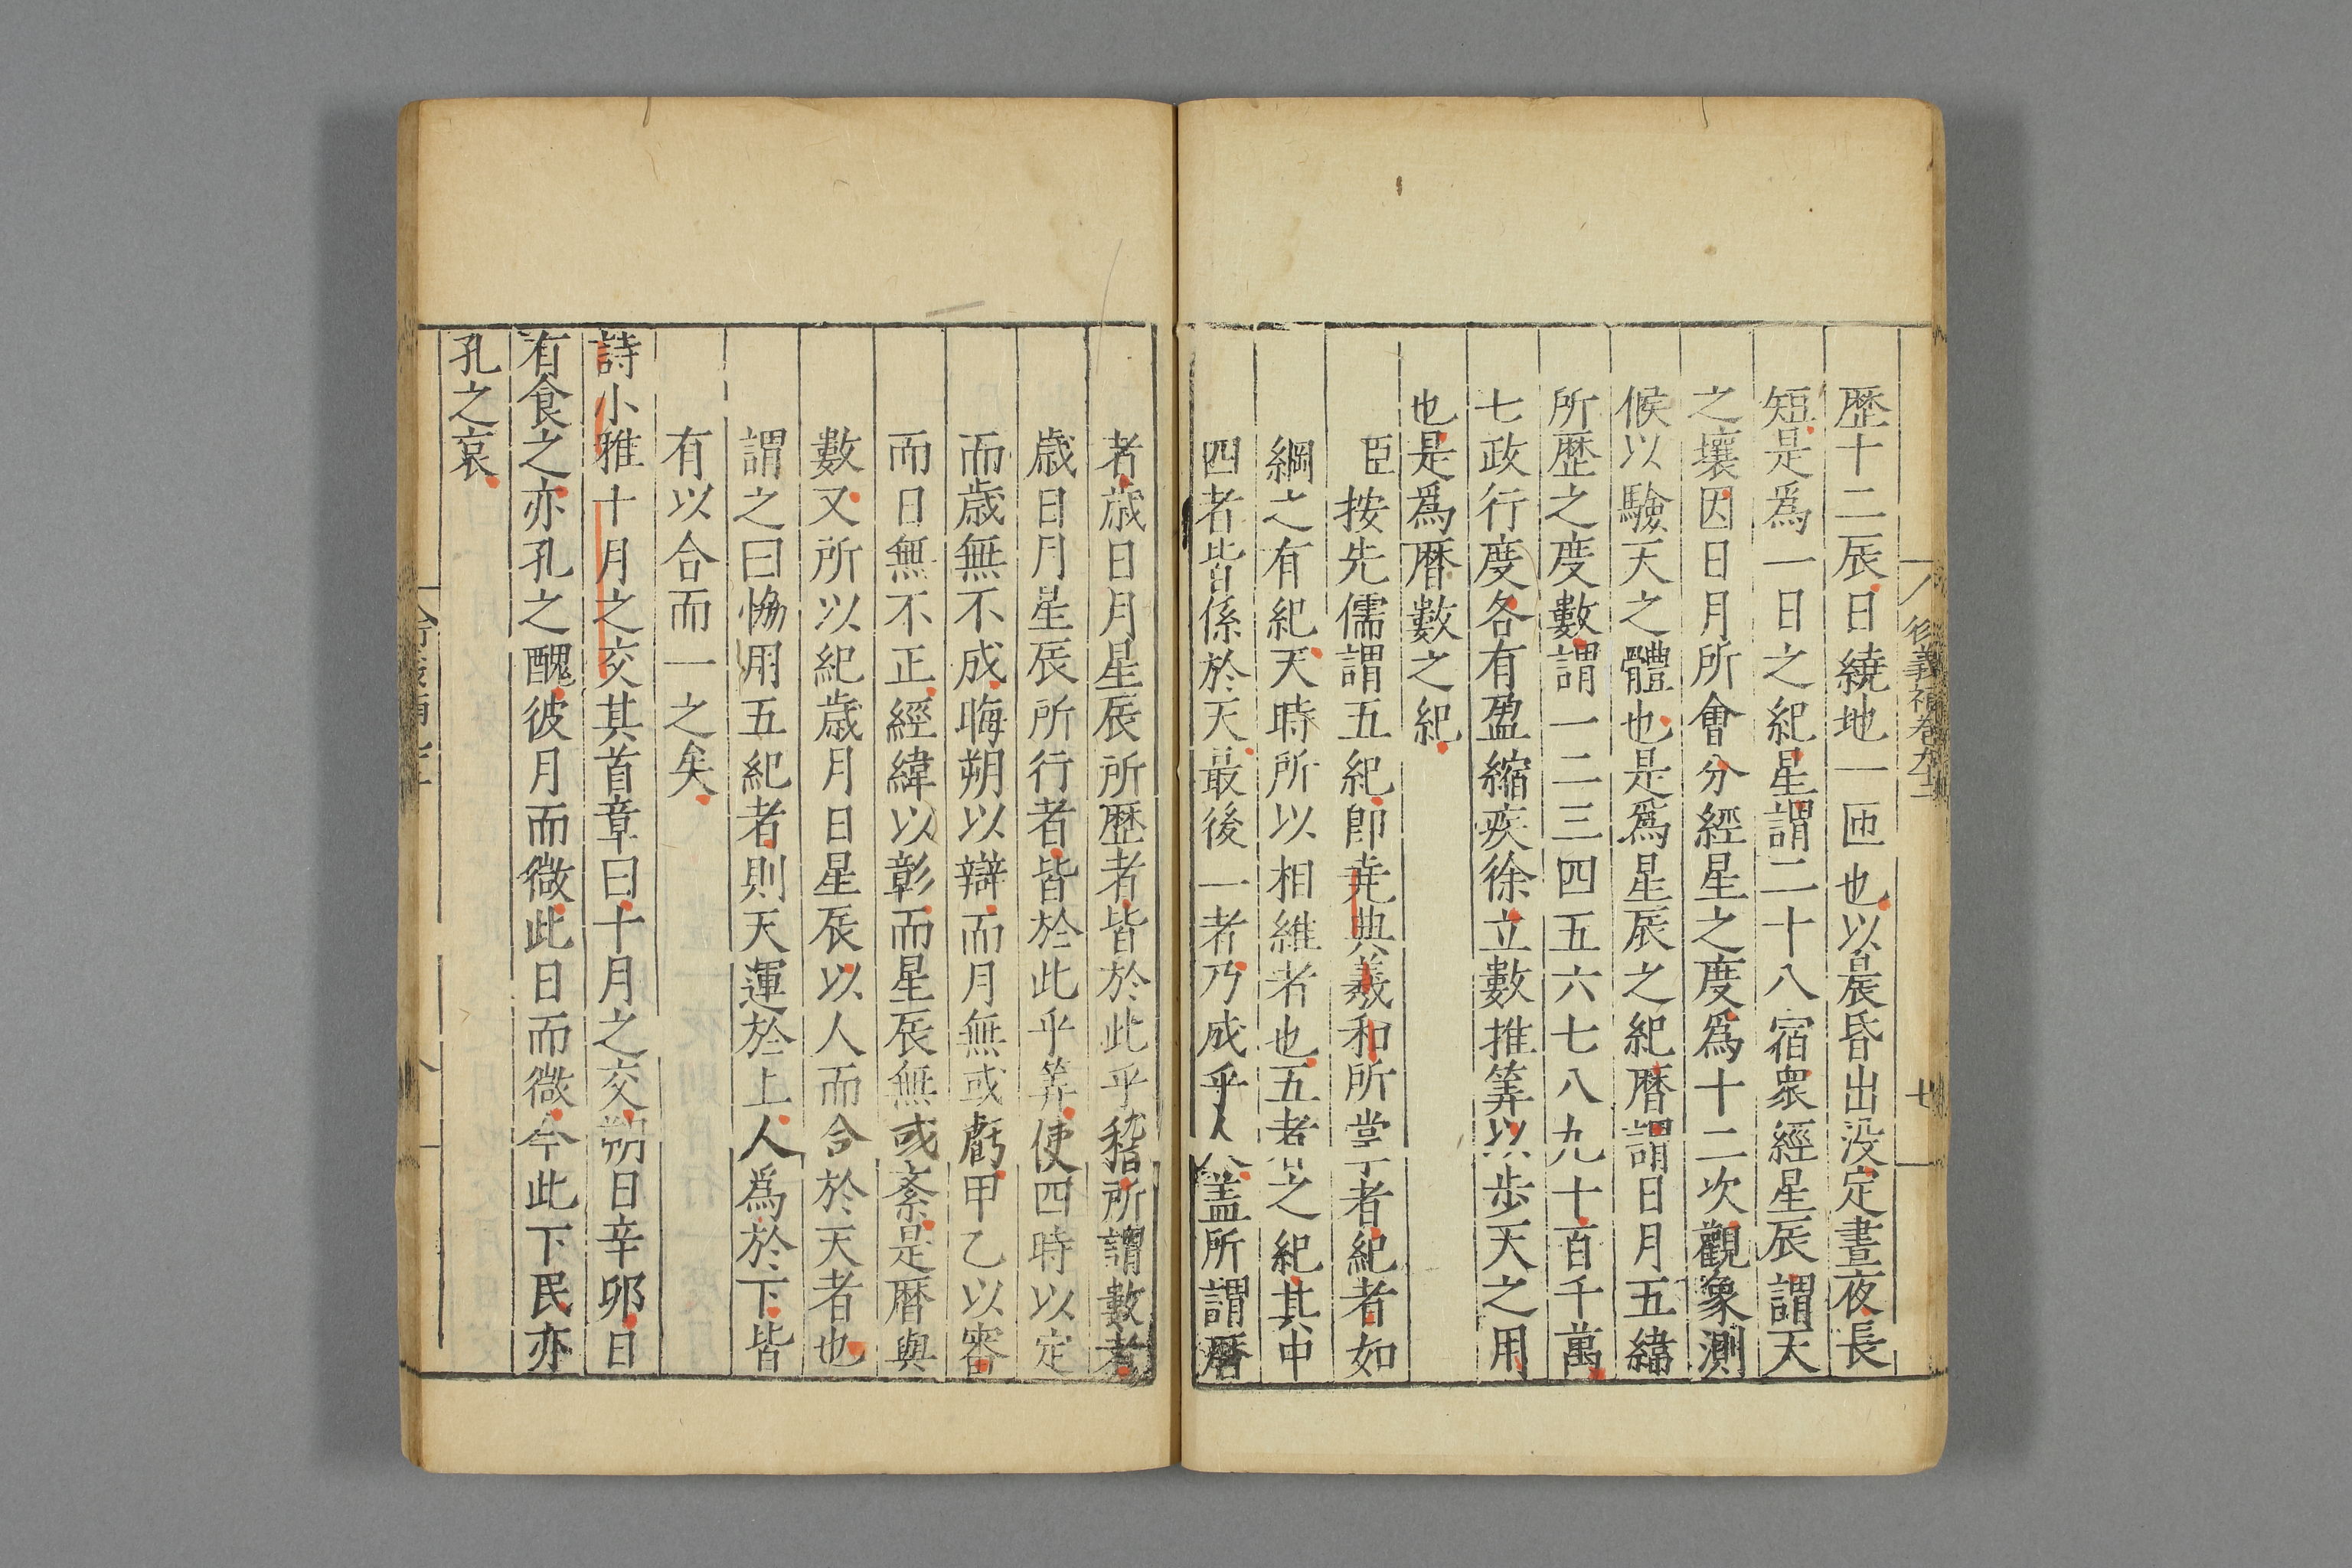 衍義補卷九十二
七
歴十二辰日繞地一匝也以晨昏出没定晝夜長
短是爲一日之紀星謂二十八宿衆經星辰謂天
之壤因日月所會分經星之度爲十二次觀象測
候以驗天之體也是爲星辰之紀曆謂日月五緯
所歴之度數謂一二三四五六七八九十百千萬
七政行度各有盈縮疾徐立數推筭以步天之用
也是爲曆數之紀
臣按先儒謂五紀即堯典羲和所掌者紀者如
綱之有紀天時所以相維者也五者之紀其中
四者皆係於天最後一者乃成乎人盖所謂曆
者歳日月星辰所歴者皆於此乎稽所謂數者
歳日月星辰所行者皆於此乎筭使四時以定
而歳無不成晦朔以辯而月無或虧甲乙以審
而日無不正經緯以彰而星辰無或紊是曆與
數又所以紀歳月日星辰以人而合於天者也
謂之曰恊用五紀者則天運於上人爲於下皆
有以合而一之矣
詩小雅十月之交其首章曰十月之交朔日辛卯日
有食之亦孔之醜彼月而微此日而微今此下民亦
孔之哀
八